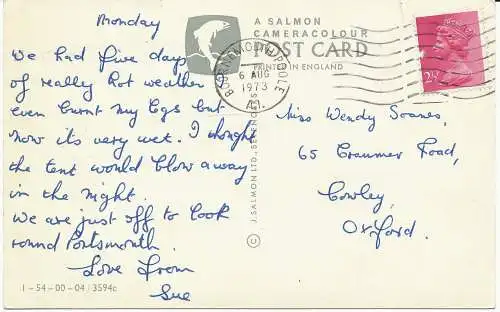 Monday
We had five days
of really hot weather I
even burnt my legs but
now its very wet. I thought
the tent would blow away
in the night.
We are just off to look
round Portsmouth.
Love from
Sue
1-54-00-04/3594c
A SALMON
CAMERACOLOUR
POST CARD
PRINTED IN ENGLAND
BOURNEMOUTH POOLE
6 AUG
1973
© J. SALMON LTD., SEVENOAKS
2½P
Miss Wendy Soanes,
65 Cranmer Road,
Cowley,
Oxford.